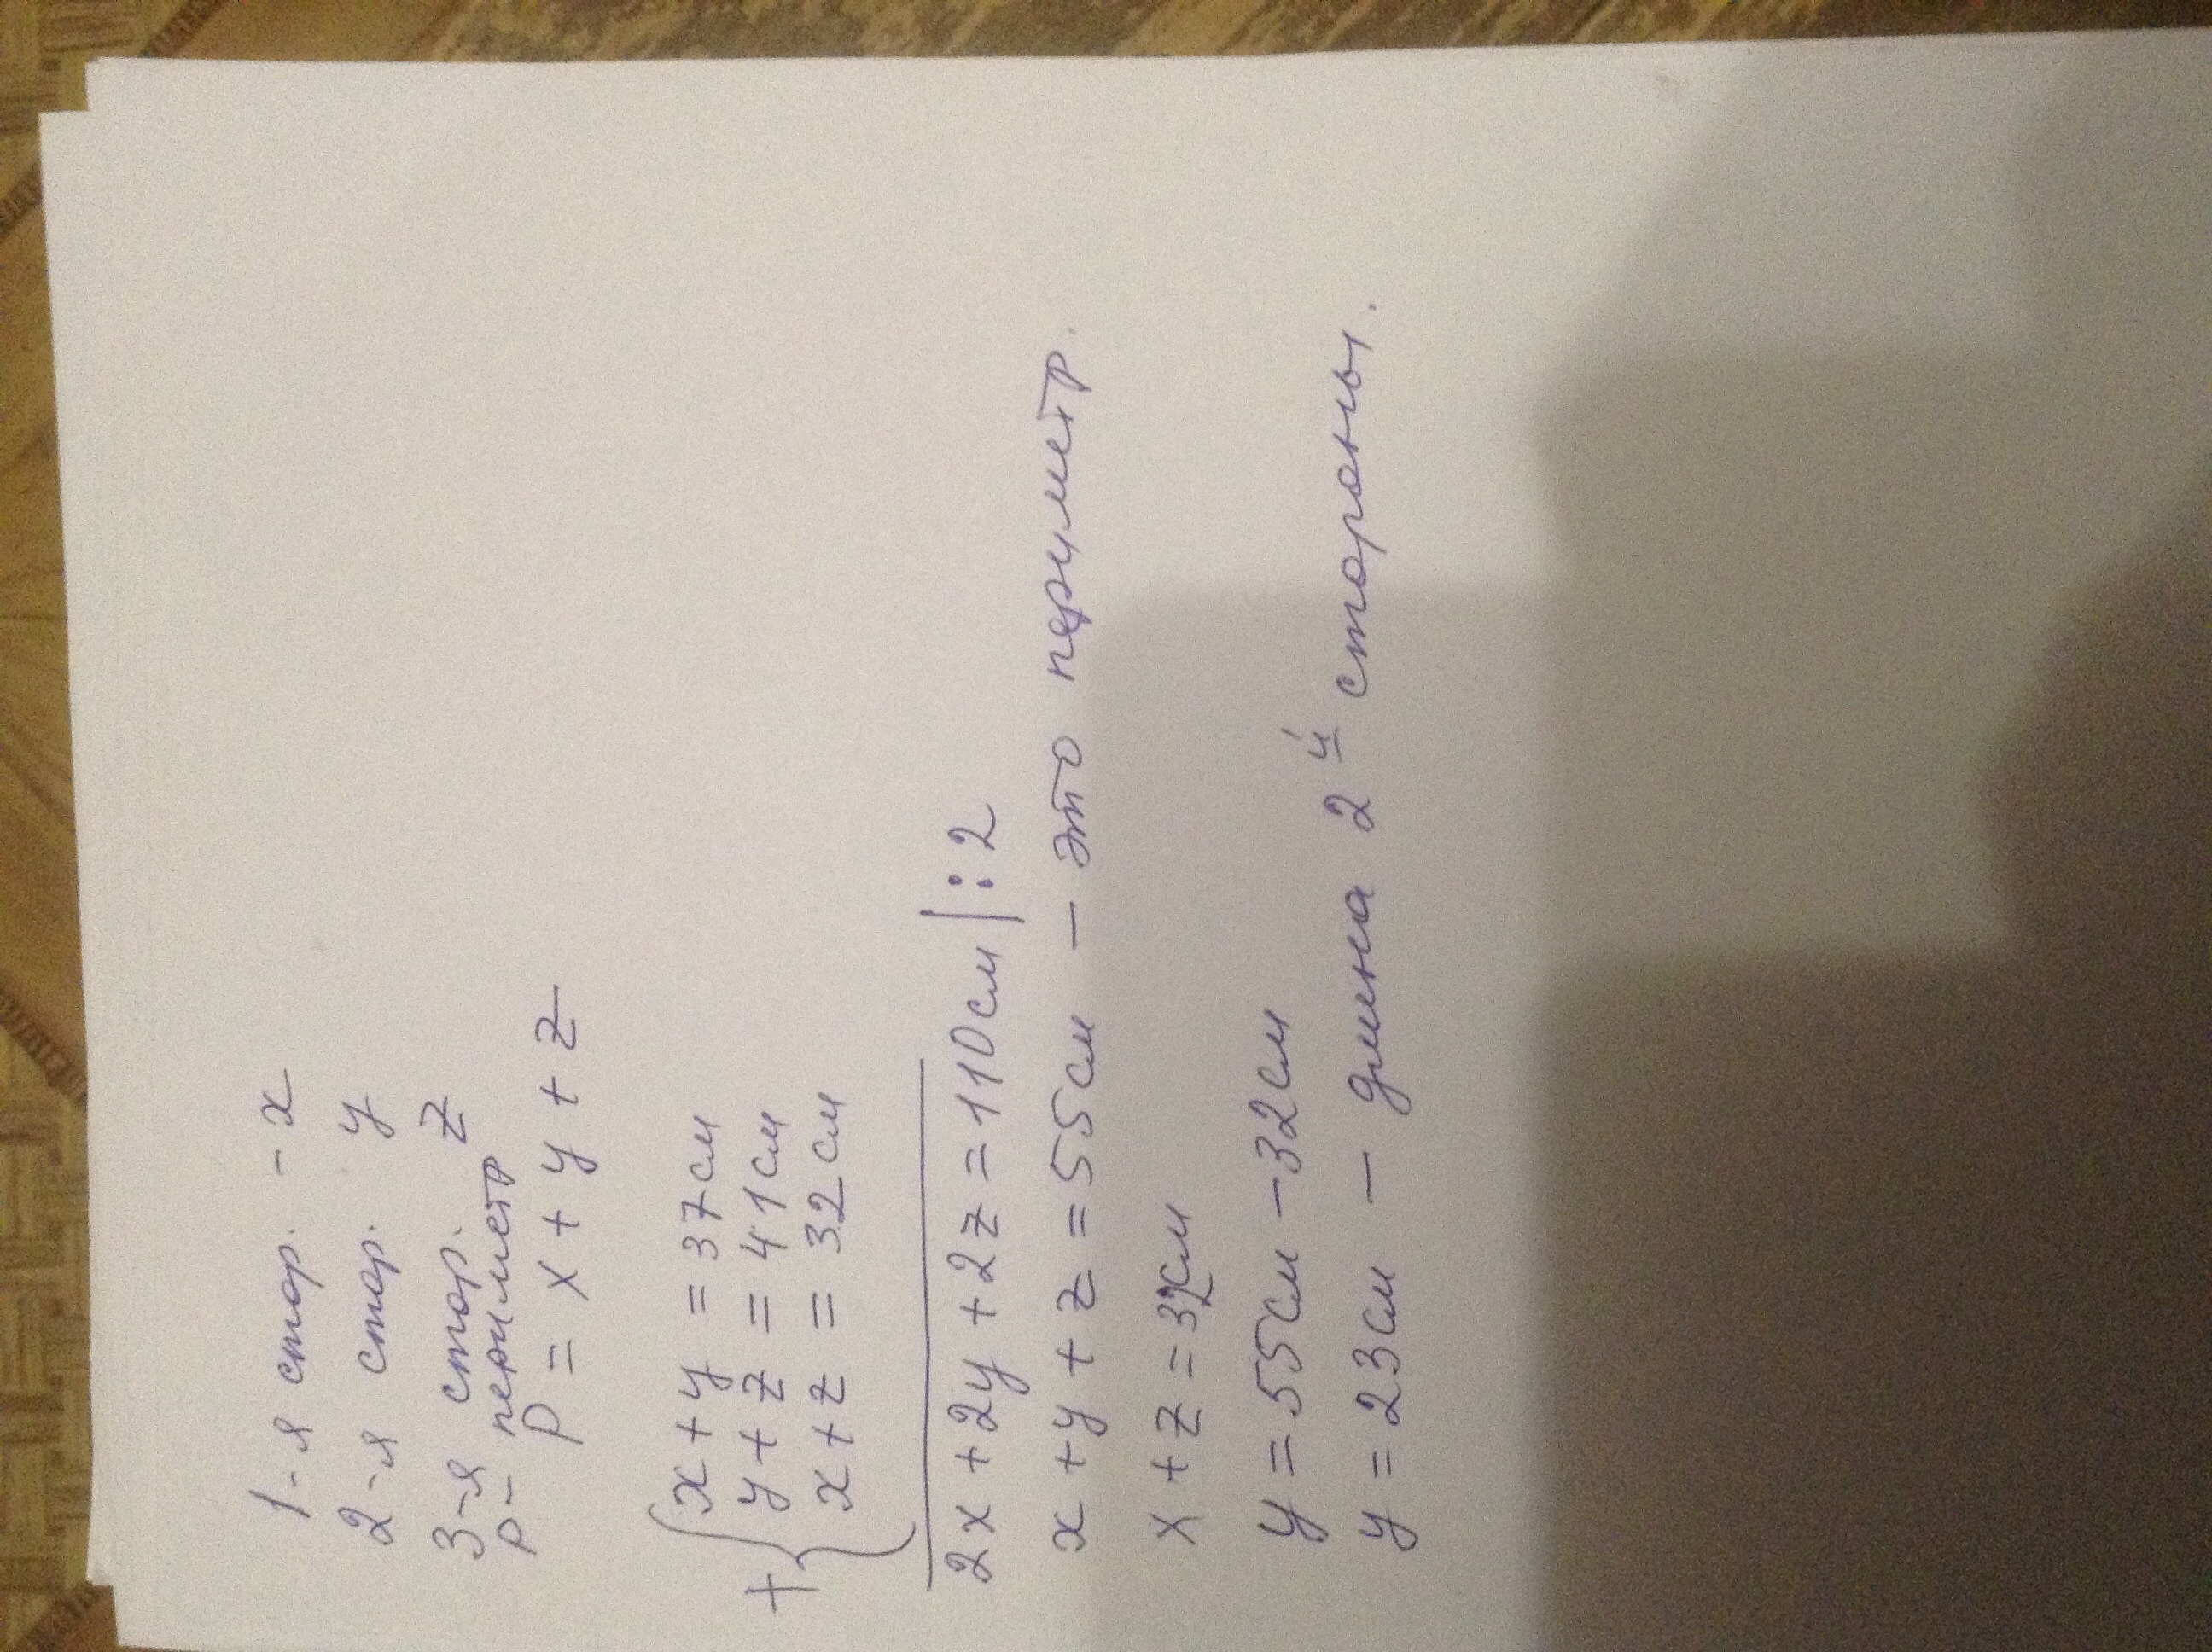 1-я стор. - x
2-я стор. y
3-я стор. z
P - периметр
P = x + y + z
x + y = 37 см
+ { y + z = 41 см
x + z = 32 см
2x + 2y + 2z = 110 см | : 2
x + y + z = 55 см - это периметр.
x + z = 32 см
y = 55 см - 32 см
y = 23 см - длина 2й стороны.